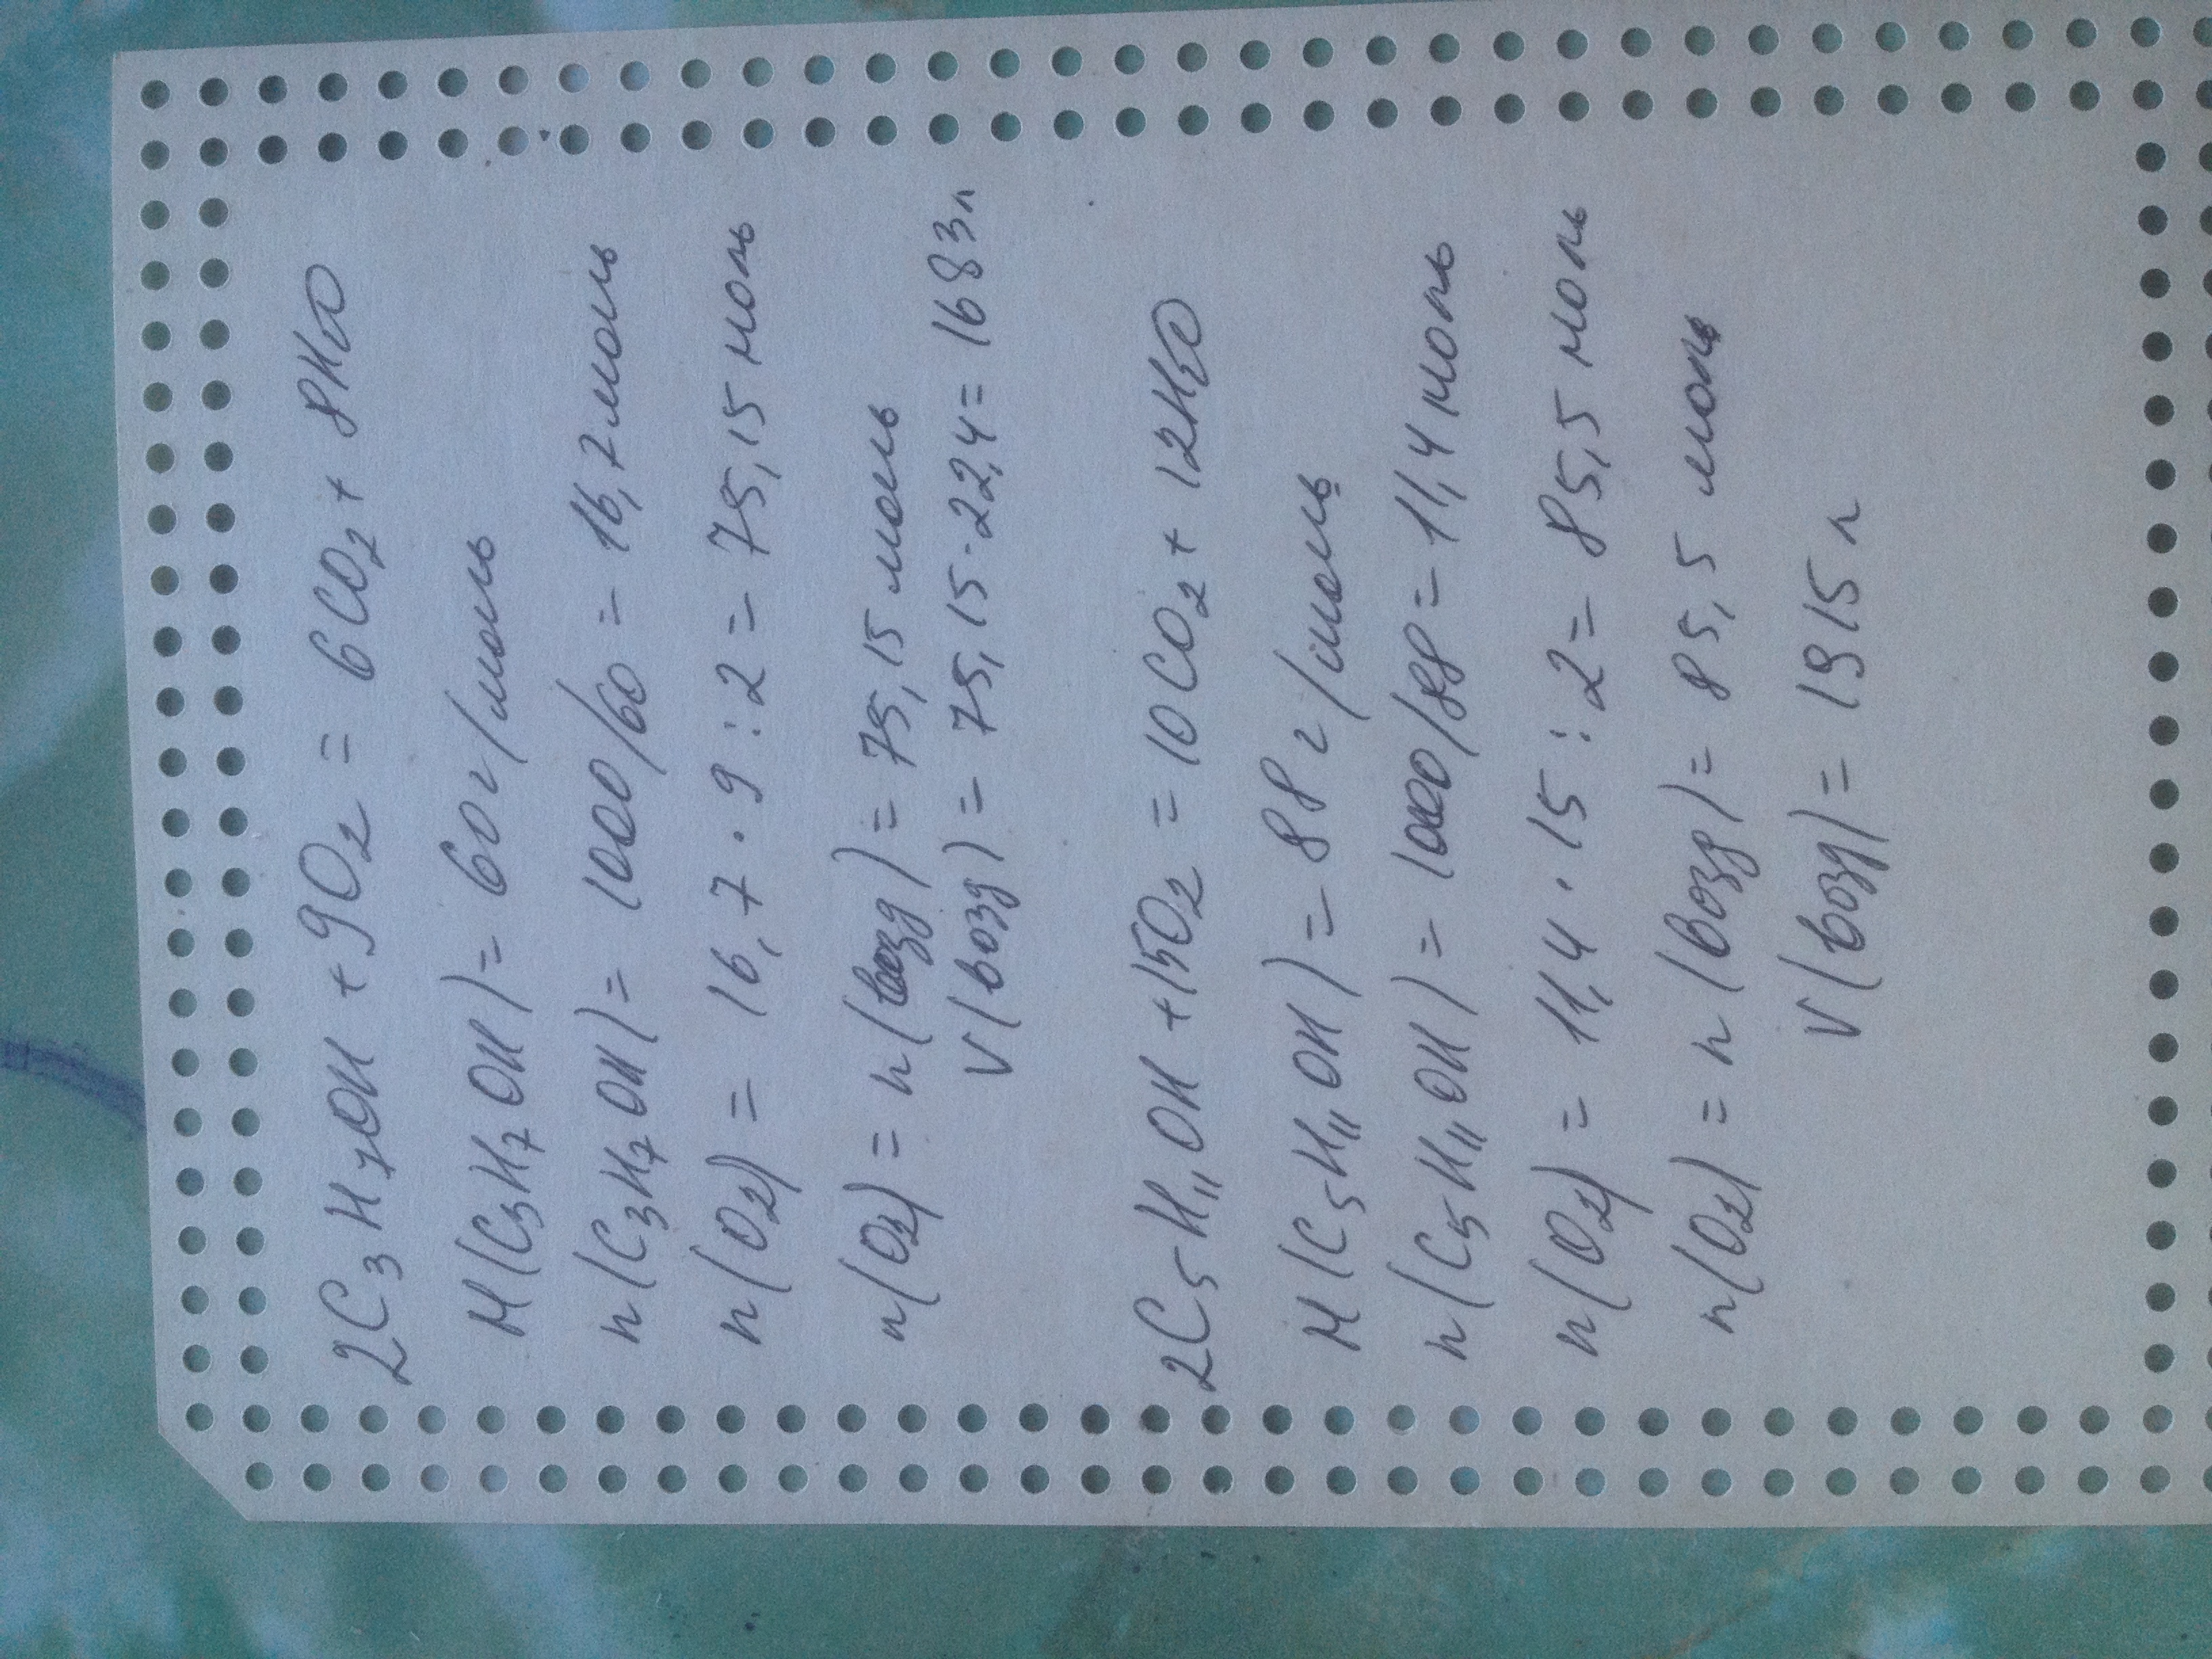 2C₃H₇OH + 9O₂ = 6CO₂ + 8H₂O
M(C₃H₇OH) = 60 г/моль
n(C₃H₇OH) = 1000/60 = 16,7 моль
n(O₂) = 16,7 · 9 : 2 = 75,15 моль
n(O₂) = n(возд) = 75,15 моль
V(возд) = 75,15 · 22,4 = 1683 л
2C₅H₁₁OH + 15O₂ = 10CO₂ + 12H₂O
M(C₅H₁₁OH) = 88 г/моль
n(C₅H₁₁OH) = 1000/88 = 11,4 моль
n(O₂) = 11,4 · 15 : 2 = 85,5 моль
n(O₂) = n(возд) = 85,5 моль
V(возд) = 1915 л